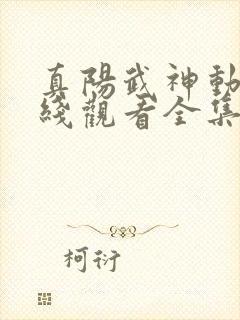 真陽武神動
綫觀看全集
柯衍